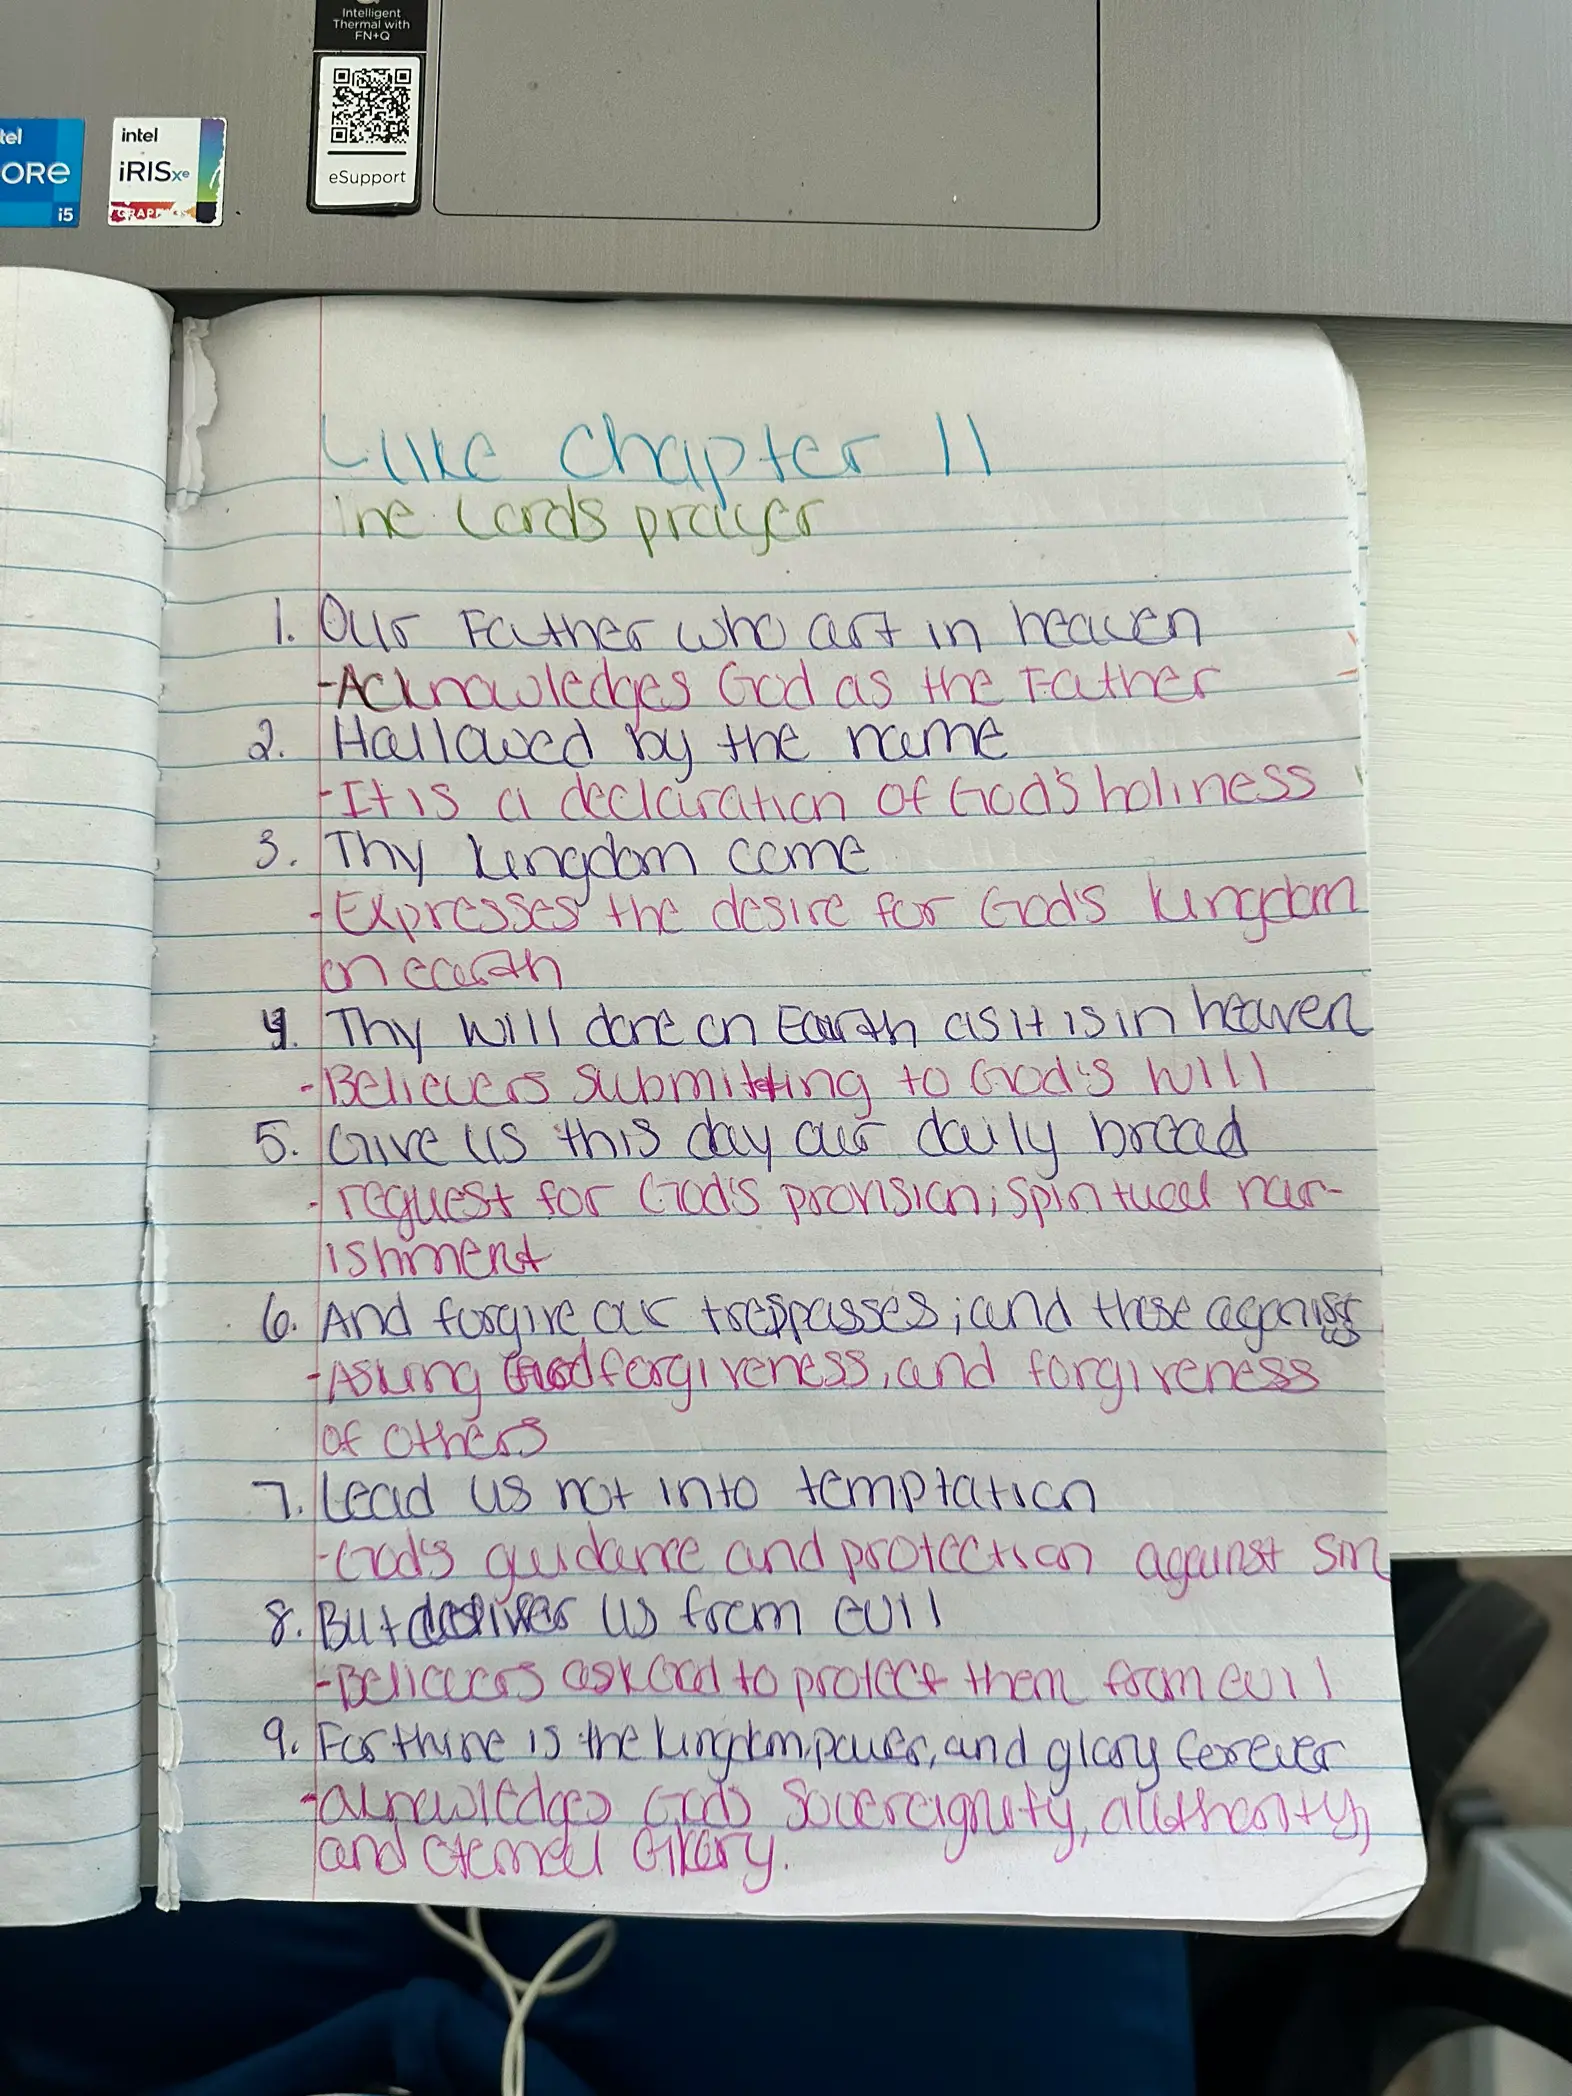 Intelligent
Thermal with
FN+Q
eSupport
tel
ORe
i5
intel
iRISxe
GRAPHICS
Luke Chapter 11
The Lords prayer
1. Our Father who art in heaven
-Acknowledges God as the Father
2. Hallowed by the name
-It is a declaration of God's holiness
3. Thy kingdom come
-Expresses the desire for God's kingdom
on earth
4. Thy will done on Earth as it is in heaven
-Believers submitting to God's will
5. Give us this day our daily bread
- request for God's provision; spiritual nor-
ishment
6. And forgive our trespasses; and those against us
-Asking God forgiveness, and forgiveness
of others
7. Lead us not into temptation
-God's guidance and protection against sin
8. But deliver us from evil
-Believers ask God to protect them from evil
9. For thine is the kingdom, power, and glory forever
-aknowledges Gods Sovereignity, authority,
and eternal Glory.